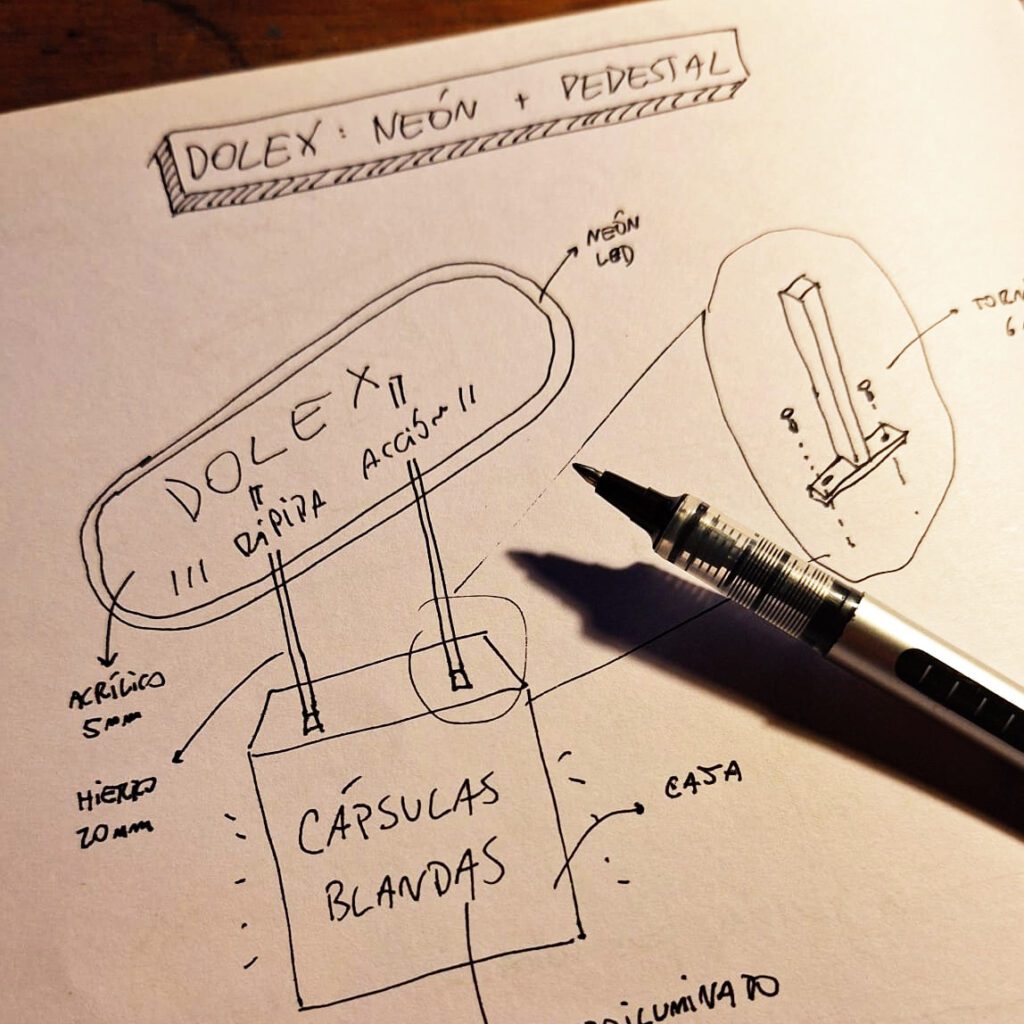 DOLEX: NEÓN + PEDESTAL
NEÓN
LED
DOLEX
RÁPIDA ACCIÓN
ACRÍLICO
5mm
HIERRO
20mm
CÁPSULAS
BLANDAS
CAJA